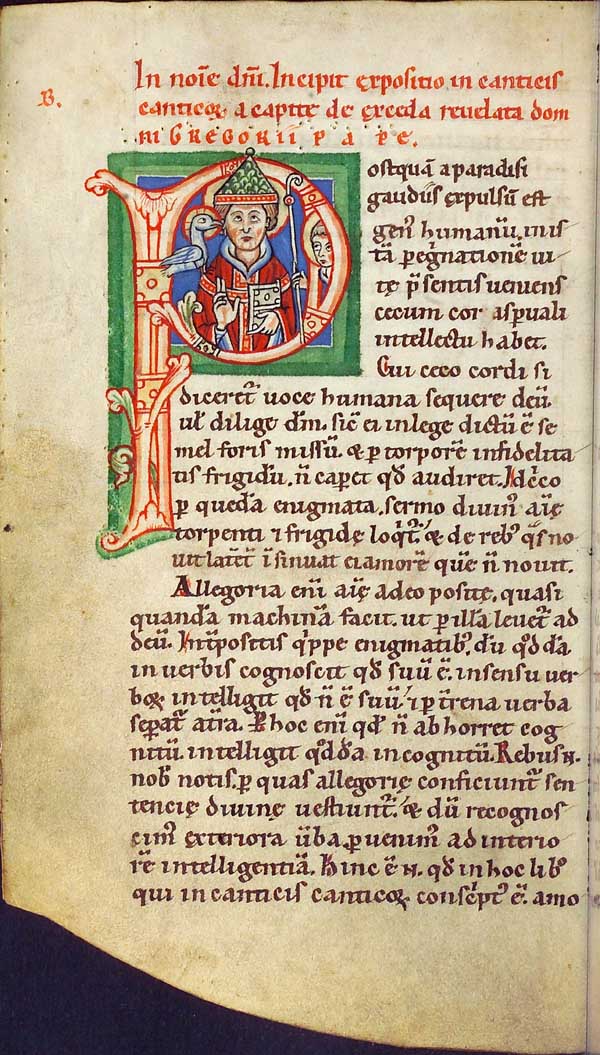 B.
In noīe dn̄i. Incipit expositio in canticis
canticoꝝ a capite de exceda reuelata dom
ni GREGORII PAPE.
Postquā a paradisi
gaudiis expulsū est
gen᷒ humanū. in is
tā peg̓natione ui
tę p̄sentis ueniens
cecum cor a sp̄uali
intellectu habet.
Cui ceco cordi si
diceret᷑ uoce humana sequere deū.
ul̓ dilige dm̄. sic̄ ei in lege dictū ē se
mel foris missū. & ꝑ torporē infidelita
tis frigidū. n̄ caperet qd̓ audiret. Idcͦco
ꝑ quedā enigmata. sermo diuin᷒ aīę
torpenti & frigidę loqͥt᷑. & de reb᷒ qͣs no
uit latent̓ īsinuat ei amorē quē n̄ nouit.
Allegoria eni̅ aīę a deo positę. quasi
quandā machinā facit. ut ꝑ illā leuet᷑ ad
deū. Int̓positis qͥppe enigmatib᷒. dū qͦddā
in uerbis cognoscit qd̓ suū ē. in sensu uer
boꝝ intelligit qd̓ n̄ ē suū. & ꝑ t̓rena uerba
seꝑat᷑ a t̓ra. P̲ hoc eni̅ qd̓ n̄ abhorret cog
nitū. intelligit qͦddā incognitū. Rebus n̄.
nob̓ notis. ꝑ quas allegorię conficiunt᷑ sen
tencię diuinę uestiunt᷑. & dū recognos
cim᷒ exteriora ūba. ꝑuenim᷒ ad interio
rē intelligentiā. Hinc ē n̄. qd̓ in hoc lib̓
qui in canticis canticoꝝ consc̓pt᷒ ē. amo